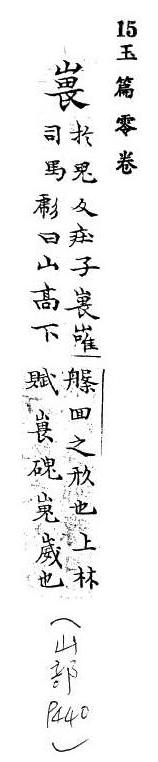 15玉篇零卷
嵔
於鬼反庄子嵔崔
司馬彪曰山高下
槃回之形也上林
賦嵔磈嵬崴也
(山部
P440)